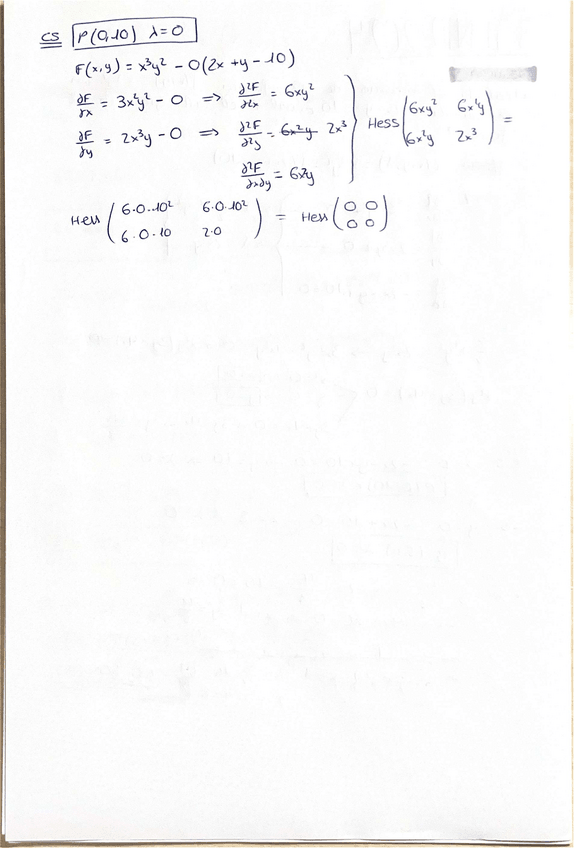 CS P(0,10) λ=0
F(x,y) = x³y² - 0(2x + y - 10)
∂F/∂x = 3x²y² - 0 ⇒ ∂²F/∂²x = 6xy²
∂F/∂y = 2x³y - 0 ⇒ ∂²F/∂²y = 6x²y 2x³
∂²F/∂x∂y = 6x²y
Hess (6xy² 6x²y
6x²y 2x³) =
Hess (6·0·10² 6·0·10²
6·0·10 2·0) = Hess (0 0
0 0)